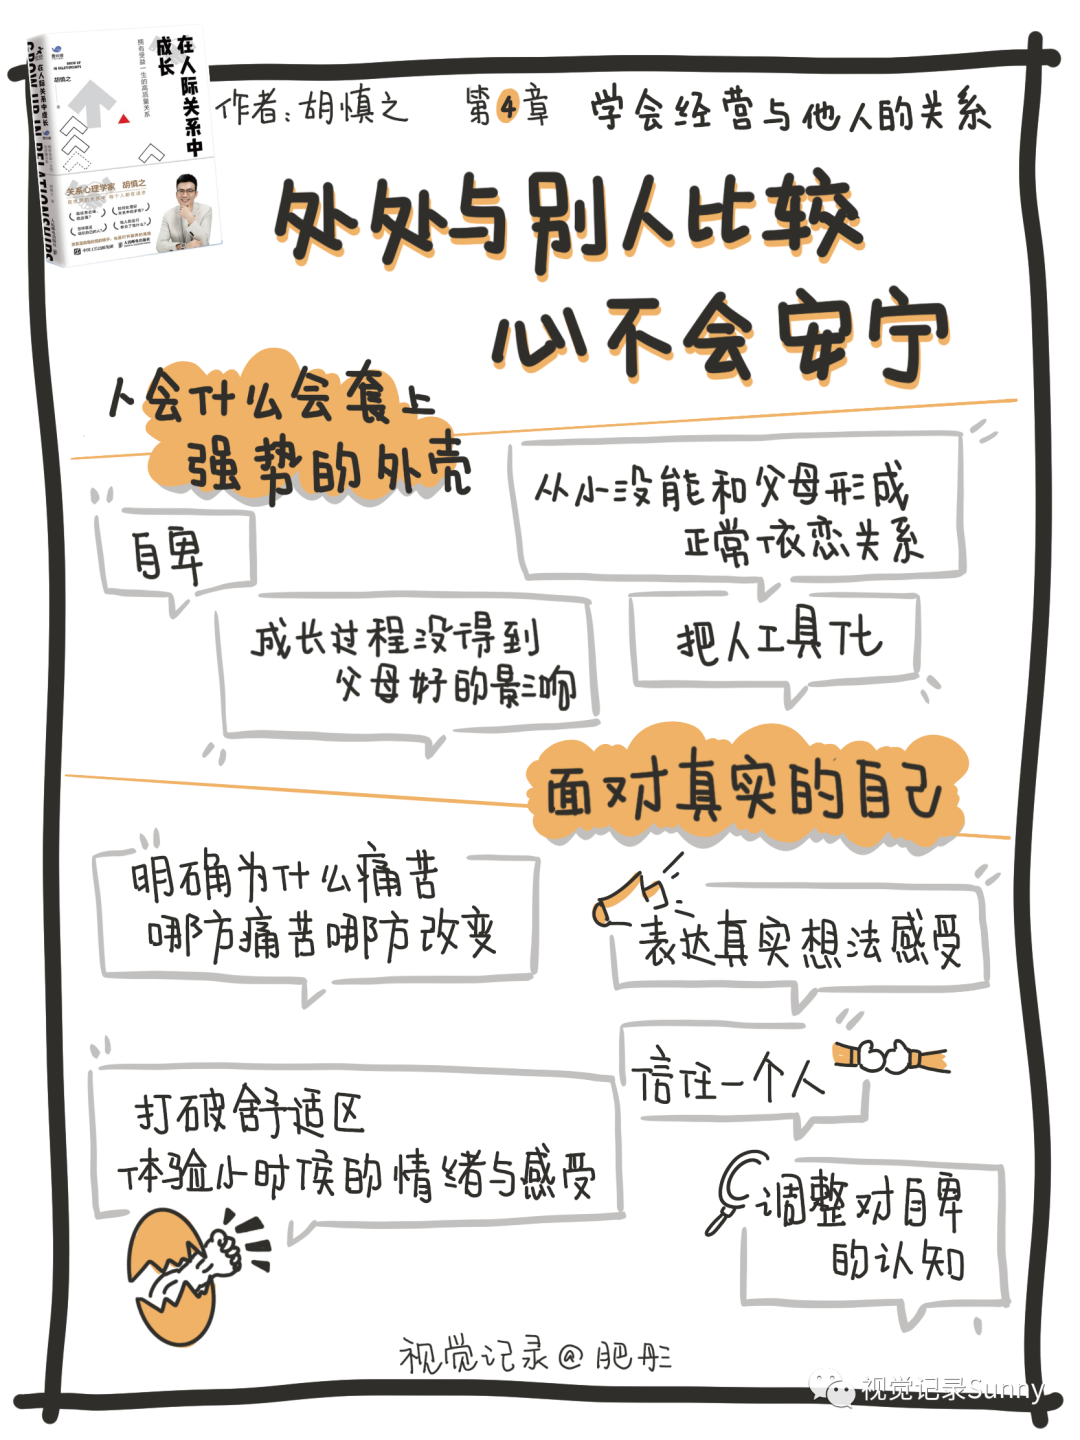 在人际关系中
成长
拥有受益一生的高质量关系
胡慎之
GROW UP IN RELATIONSHIPS
关系心理学家 胡慎之
作者:胡慎之 第4章 学会经营与他人的关系
处处与别人比较
心不会安宁
人会什么会套上
强势的外壳
自卑
从小没能和父母形成
正常依恋关系
成长过程没得到
父母好的影响
把人工具化
面对真实的自己
明确为什么痛苦
哪方痛苦哪方改变
表达真实想法感受
信任一个人
打破舒适区
体验小时候的情绪与感受
调整对自卑
的认知
视觉记录@肥彤
视觉记录Sunny